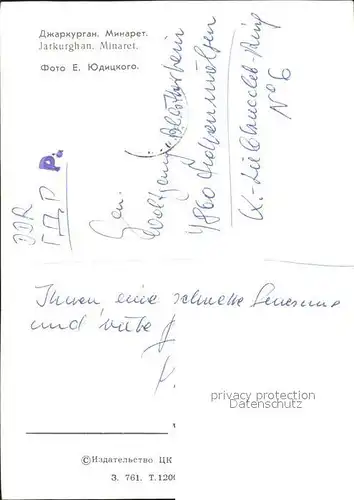 Джаркурган. Минарет.
Jarkurghan. Minaret.
Фото Е. Юдицкого.
DDR
ГДР
P.
Gen.
Wolfgang
4860 Hohenmölsen
K.-Liebknecht-Ring
No 6
Ihnen, eine schnelle Genesung
und viele
privacy protection
Datenschutz
©Издательство ЦК
З. 761. Т.1200